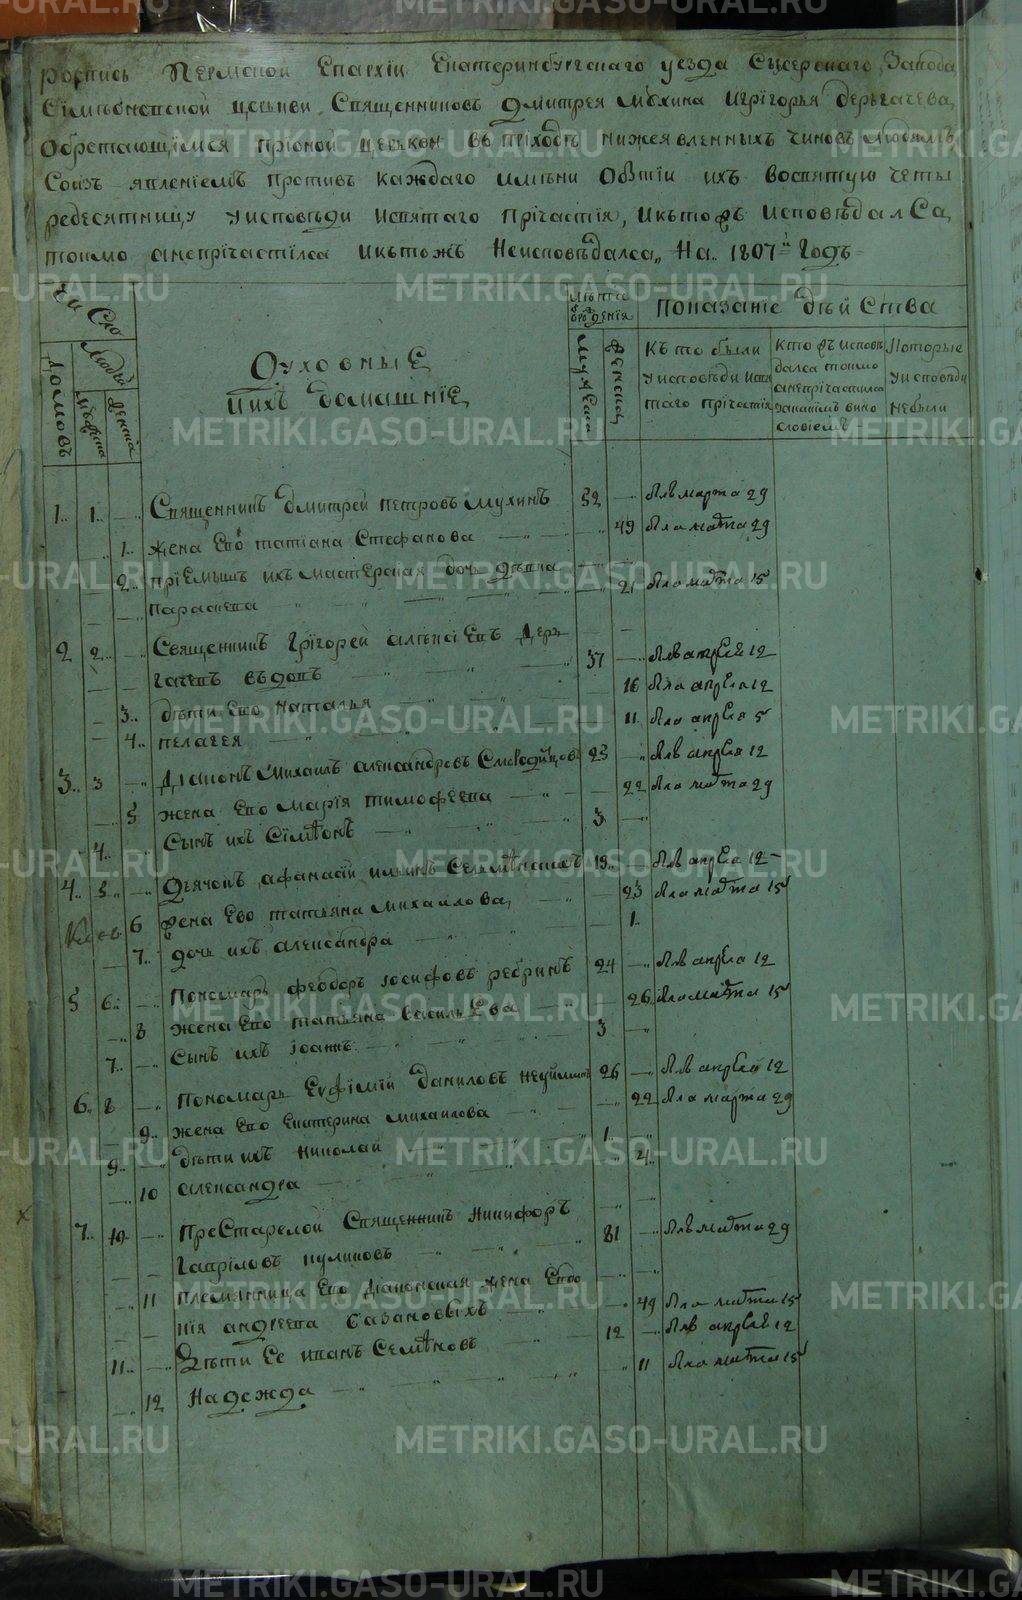 Роспись Пермской Епархїи Екатеринбургскаго уезда Сысерскаго Завода
Сїмеоновской церькви Священниковъ Дмитрея Мухина Игрігорья Дерьгачева
Обретающїмся прионой церькви въ прїходѣ нижеявленныхъ чиновъ людямъ
Соизъявленіемъ противъ каждаго имяни Обытіи ихъ восвятую четы
редесятницу уисповѣди исвятаго прїчастїя, Икъто жъ исповѣдалСа
токмо анепрїчастїлса Икътожъ Неисповѣдалса, На 1807й Годъ
Число
Людей
Домовъ
мужеска
женска
Духовные
иихъ домашнїе
Лѣта
отрожденія
мужеска
женска
Показанїе дѣйСтва
Къто были
уисповѣди исвя
таго прїчастїя
Кто жъ исповѣ
далса токмо
анепрїчастілса
закакимъ вино
словіемъ
Которые
уисповѣди
небыли
1 1 Священникъ Дмитрей Петровъ Мухинъ 52 былъ марта 29
1 Жена Его татіана Стефанова 49 была марта 29
2 прїемышъ ихъ мастерская дочь дѣвка
параскева 21 была марта 15
2 2 Священникъ Грїгорей алексіевъ Дер
гачевъ вдовъ 37 былъ апреля 12
3 дѣти Его Наталья 16 была апреля 12
4 пелагея 11 была апреля 5
3 3 Діаконъ Михаилъ александровъ Смородинцовъ 23 былъ апреля 12
5 жена Его марїя тимофеева 22 была марта 29
4 Сынъ ихъ Сїмеонъ 3
4 5 Дьячокъ афанасій ильинъ 19 былъ апреля 12
6 жена Его татьяна михаилова 23 была марта 15
7 дочь ихъ александра 1
5 6 Пономарь феодоръ іосифовъ ребринъ 24 былъ апреля 12
8 жена Его татьяна васильЕва 26 была марта 15
7 Сынъ ихъ іоаннъ 3
6 8 Пономарь Еуфімій даниловъ 26 былъ апреля 12
9 жена Его Екатерина михаилова 22 была марта 29
9 дѣти ихъ николай 1
10 александра
7 10 ПреСтарелой Священникъ Никифоръ
гаврїловъ куликовъ 81 былъ марта 29
11 племянница Его діаконская жена Евдо
кія андреева Сазановыхъ 49 была марта 15
11 Дѣти Ее иванъ Семеновъ 12 былъ апреля 12
12 Надежда 11 была марта 15
METRIKI.GASO-URAL.RU